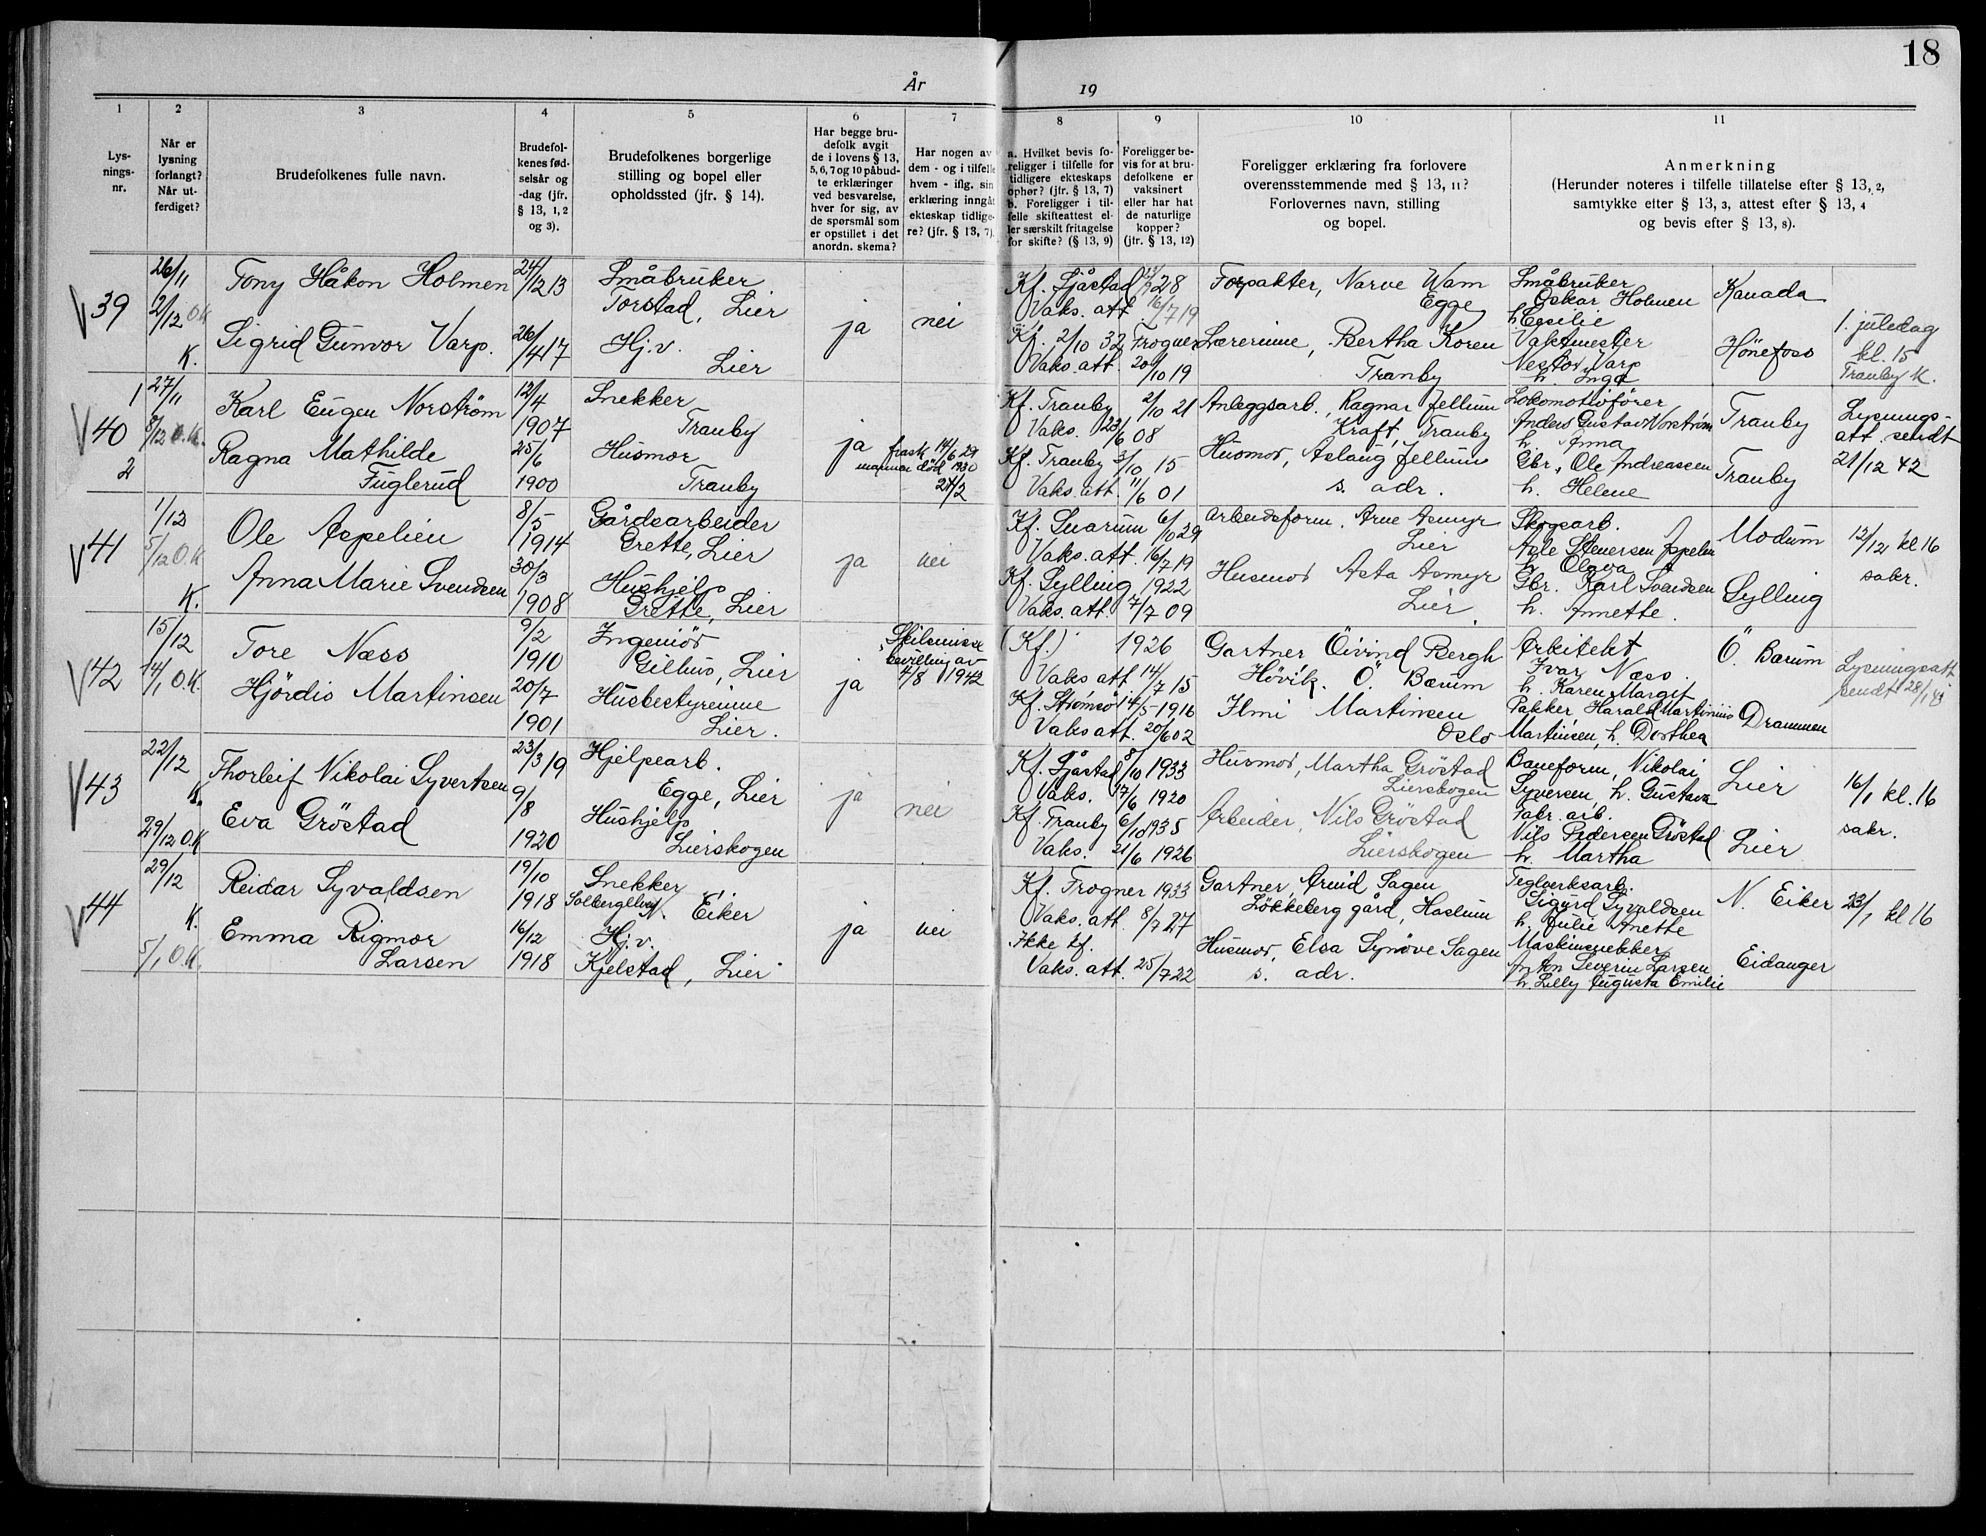 18
År 19
1 2 3 4 5 6 7 8 9 10 11
Lys-
nings-
nr.
Når er
lysning
forlangt?
Når ut-
ferdiget?
Brudefolkenes fulle navn.
Brudefol-
kenes fød-
selsår og
-dag (jfr.
§ 13, 1, 2
og 3).
Brudefolkenes borgerlige
stilling og bopel eller
opholdssted (jfr. § 14).
Har begge bru-
defolk avgit
de i lovens § 13,
5, 6, 7 og 10 påbud-
te erklæringer
ved besvarelse,
hver for sig, av
de spørsmål som
er opstillet i det
anordn. skema?
Har nogen av
dem - og i tilfelle
hvem - iflg. sin
erklæring inngåt
ekteskap tidlige-
re? (jfr. § 13, 7).
a. Hvilket bevis fo-
religger i tilfelle for
tidligere ekteskaps
ophør? (jfr. § 13, 7)
b. Foreligger i til-
felle skifteattest el-
ler særskilt fritagelse
for skifte? (§ 13, 9)
Foreligger be-
vis for at bru-
defolkene er
vaksinert
eller har hat
de naturlige
kopper?
(jfr. § 13, 12)
Foreligger erklæring fra forlovere
overensstemmende med § 13, 11?
Forlovernes navn, stilling
og bopel.
Anmerkning
(Herunder noteres i tilfelle tillatelse efter § 13, 2,
samtykke efter § 13, 3, attest efter § 13, 4
og bevis efter § 13, 8).
V 39
26/11
2/12 O.K.
K.
Tony Håkon Holmen
Sigrid Gunvor Varp.
24/12 13
26/4 17
Småbruker
Torstad, Lier
Hj.v.
Lier
ja
nei
Kf. Sjåstad 28
Vaks. att. 16/7 19
Kf. 2/10 32 Frogner
Vaks. att. 20/10 19
Forpakter, Narve Wam
Egge
Lærerinne, Bertha Koren
Tranby
Småbruker
Oskar Holmen
h. Cecilie
Kanada
Vaktmester
Nestor Varp
h. Inga
Hönefoss
1. juledag
kl. 15
Tranby K.
1
V 40
2
27/11
8/12 O.K.
Karl Eugen Norström
Ragna Mathilde
Fuglerud
12/4
1907
25/6
1900
Snekker
Tranby
Husmor
Tranby
ja
frask. 14/6 29
mannen död 1930
24/2
Kf. Tranby 2/10 21
Vaks. 23/6 08
Kf. Tranby 3/10 15
Vaks. att. 11/6 01
Anleggsarb., Ragnar Jellum
Kraft, Tranby
Husmor, Aslaug Jellum
s. adr.
Lokomotivförer
Anders Gustav Norström
h. Anna
Tranby
Gbr. Ole Andreassen
h. Helene
Tranby
Lysnings-
att. sendt
21/12 42
V 41
1/12
5/12 O.K
K.
Ole Aspelien
Anna Marie Svendsen
8/5
1914
30/3
1908
Gårdsarbeider
Grette, Lier
Hushjelp
Grette, Lier
ja
nei
Kf. Snarum 6/10 29
Vaks. att. 16/7 19
Kf. Sylling 1922
Vaks. att. 7/7 09
Arbeidsform. Arne Asmyr
Lier
Husmor Asta Asmyr
Lier.
Skogsarb.
h. Olava
Modum
Gbr. Karl Svendsen
h. Annette.
Sylling
12/12 kl 16
sakr.
V 42
15/12
14/1 O.K.
Tore Næss
Hjördis Martinsen
9/2
1910
20/7
1901
Ingeniör
Gilhus, Lier
Husbestyrerinne
Lier.
ja
Skilsmisse
bevilling av
4/8 1942
(Kf.) 1926
Vaks att 14/7 15
Kf. Strömsö 14/5 1916
Vaks att. 20/6 02
Gartner Öivind Bergh
Hövik. Ö. Bærum
Ilmi Martinsen
Oslo
Arkitekt
Ivar Næss.
h. Karen Margit
Ö. Bærum
Pakker Harald Martinius
Martinsen, h. Dorthea
Drammen
Lysningsatt
sendt 28/1 43
V 43
22/12
K.
29/12 O.K
Thorleif Nikolai Syvertsen
Eva Gröstad
23/3 19
9/8
1920
Hjelpearb.
Egge, Lier
Hushjelp
Lierskogen
ja
nei
Kf. Sjåstad 8/10 1933
Vaks. 17/6 1920
Kf. Tranby 6/10 1935
Vaks. 21/6 1926
Husmor, Martha Gröstad
Lierskogen
Arbeider, Nils Gröstad
Lierskogen
Baneform, Nikolai
Syversen, h. Gustava
Lier
Fabr. arb.
Nils Pedersen Gröstad
h. Martha
Lier
16/1 kl. 16
sakr.
V 44
29/12
K.
5/1 O.K.
Reidar Syvaldsen
Emma Rigmor
Larsen
19/10
1918
16/12
1918
Snekker
Solbergelva N. Eiker
Hj.v.
Kjelstad, Lier
ja
nei
Kf. Frogner 1933
Vaks. att. 8/7 27
Ikke kf.
Vaks. att. 25/7 22
Gartner, Arvid Sagen
Lökkeberg gård, Haslum
Husmor, Elsa Synöve Sagen
s. adr.
Teglverksarb.
Sigurd Syvaldsen
h. Julie Anette
N. Eiker
Maskinsnekker
Anton Severin Larsen
h. Lilly Augusta Emilie
Eidanger
23/1 kl 16